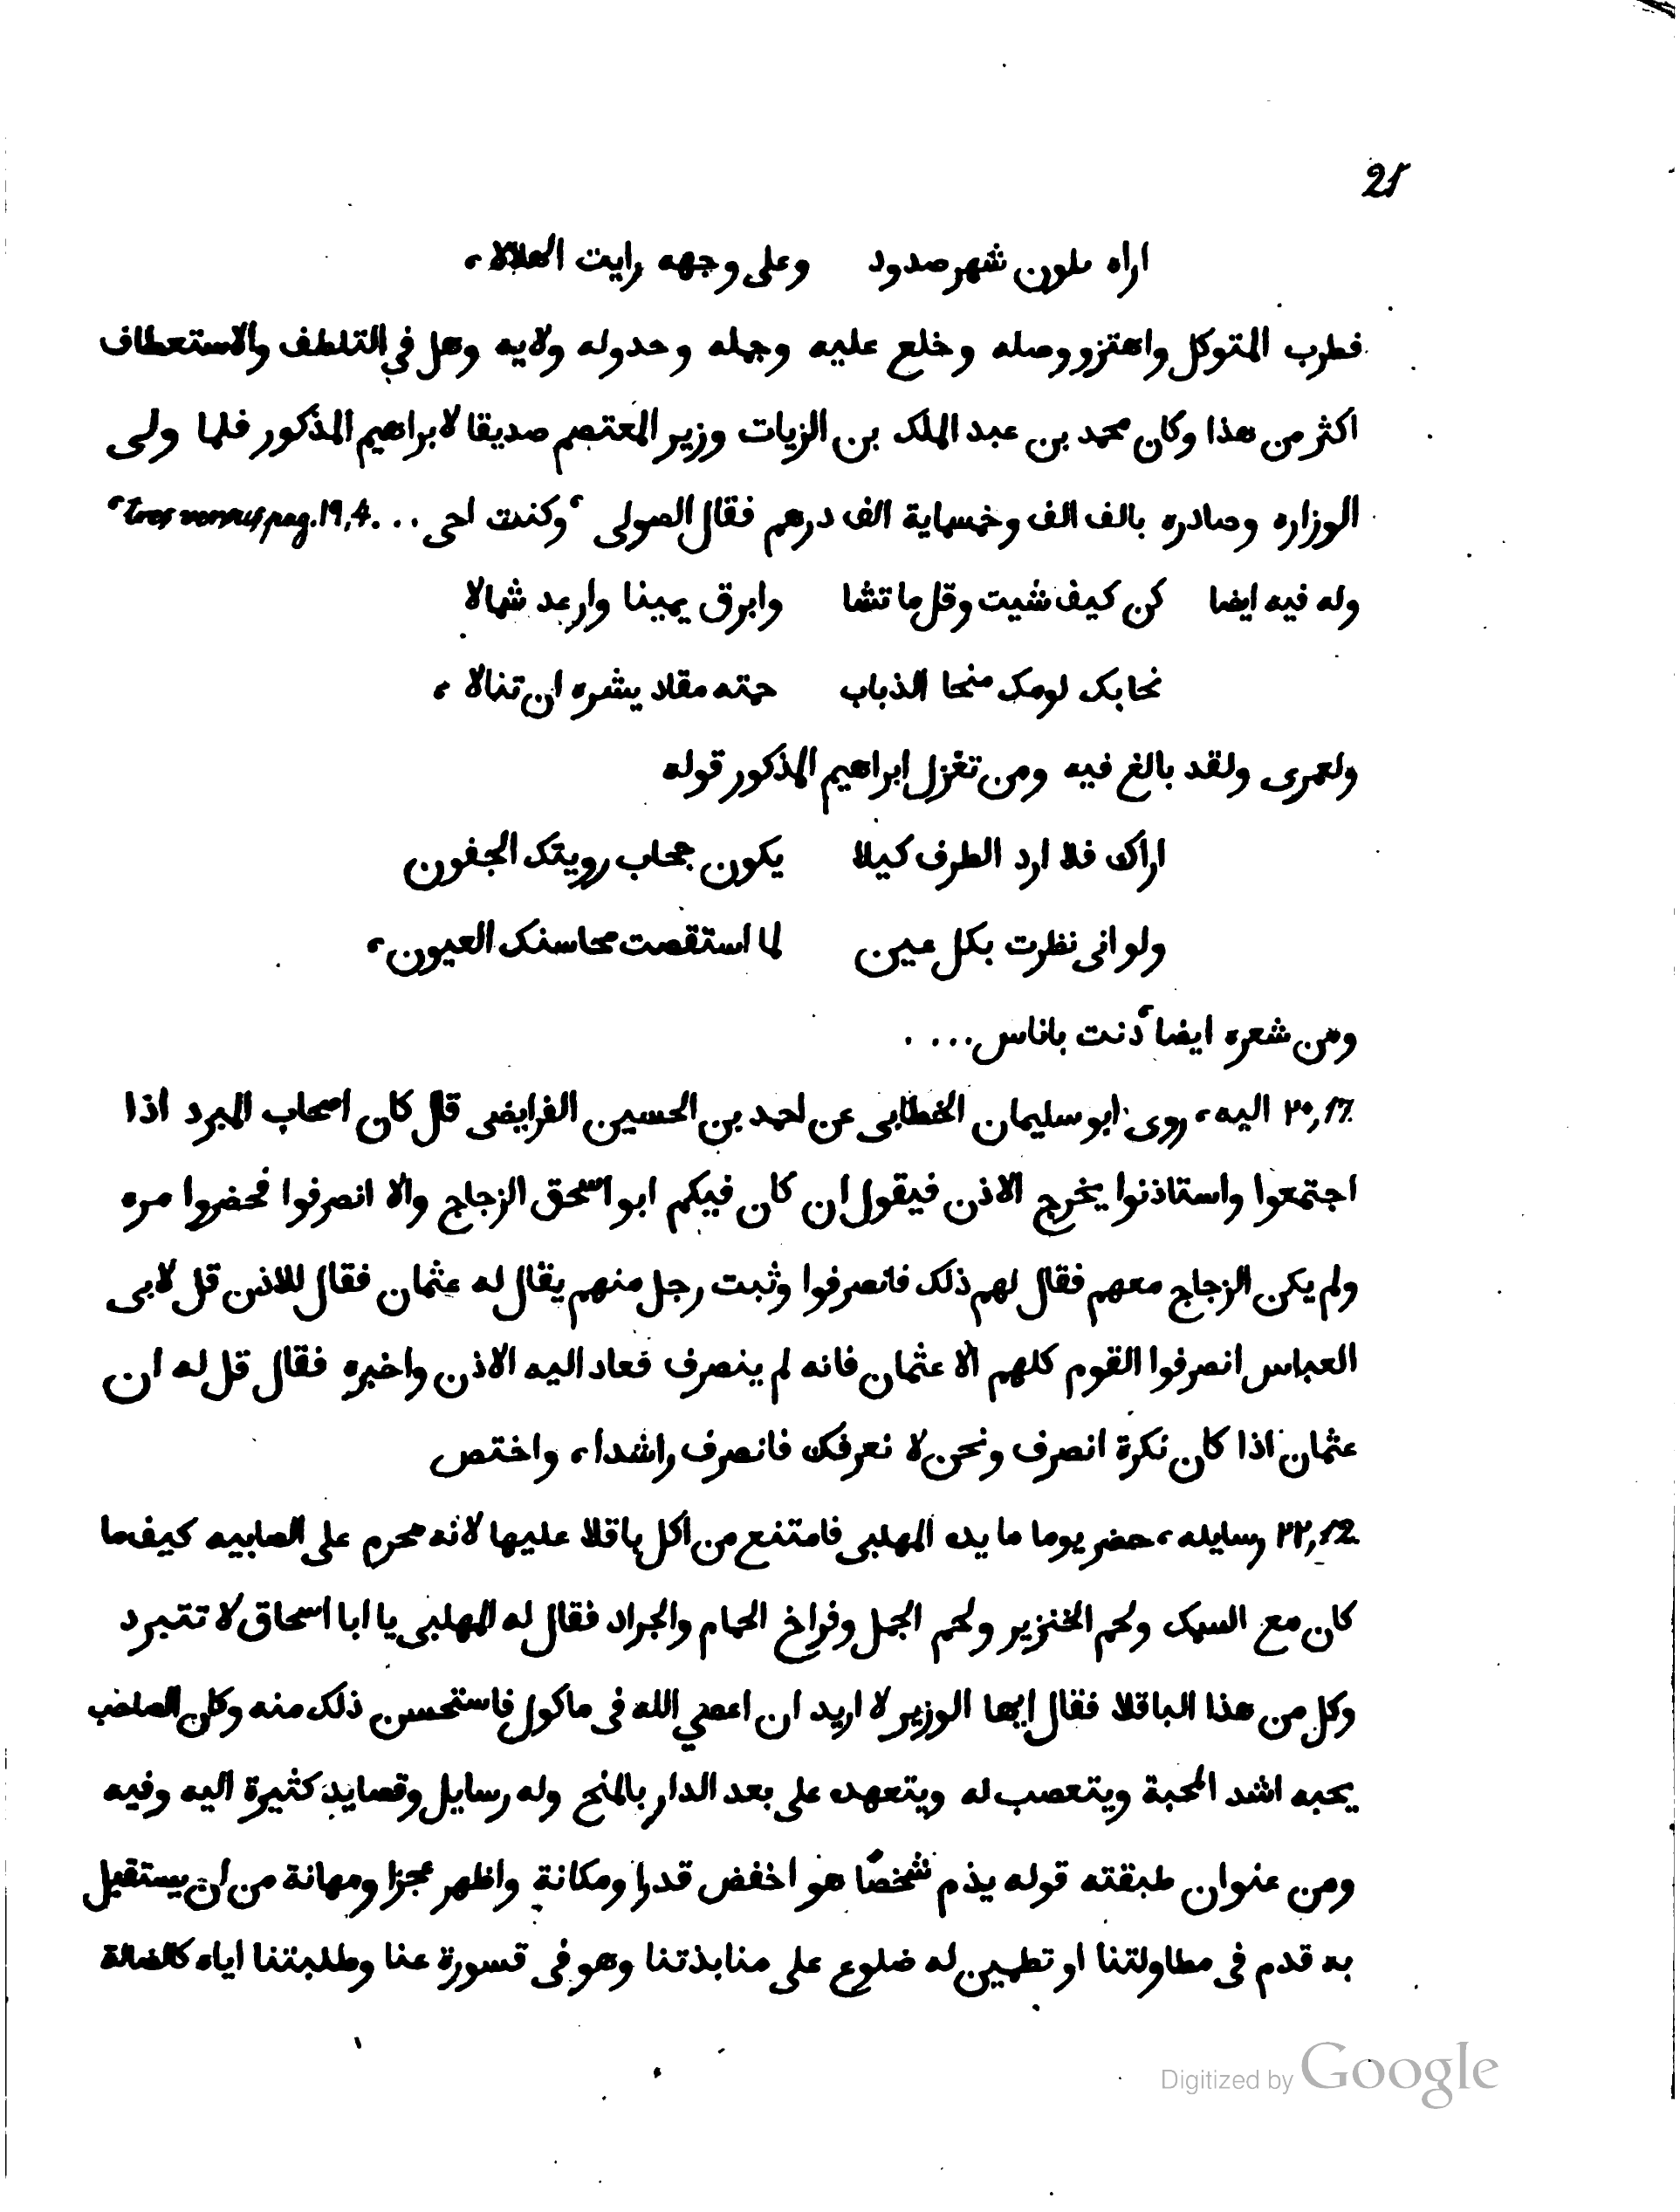 21
اراه ملون شهر صدود وعلى وجهه رايت الهلالا،
فطرب المتوكل واهتز ووصله وخلع عليه وجمله وحدوله ولايه وهل في التلطف والاستعطاف
اكثر من هذا وكان محمد بن عبد الملك بن الزيات وزير المعتصم صديقا لابراهيم المذكور فلما ولى
الوزاره وصادره بالف الف وخمسماية الف درهم فقال الصولى ʿوكنت اخى ... tres versus pag. 19,4.ʿ
وله فيه ايضا كن كيف شيت وقل ما تشا وابرق يمينا وارعد شمالا
نحا بك لومك منحا الذباب حمته مقاد يشره ان تنالا،
ولعمرى ولقد بالغ فيه ومن تغزل ابراهيم المذكور قوله
اراك فلا ارد الطرف كيلا يكون حجاب رويتك الجفون
ولو انى نظرت بكل عين لما استقصت محاسنك العيون،
ومن شعره ايضاʿ دنت باناس ....
٢٠,17. اليه، روى ابو سليمان الخطابى عن احمد بن الحسين الفرايضى قال كان اصحاب المبرد اذا
اجتمعوا واستاذنوا يخرج الاذن فيقول ان كان فيكم ابو اسحق الزجاج والا انصرفوا فحضروا مره
ولم يكن الزجاج معهم فقال لهم ذلك فانصرفوا وثبت رجل منهم يقال له عثمان فقال للاذن قل لابى
العباس انصرفوا القوم كلهم الا عثمان فانه لم ينصرف فعاد اليه الاذن واخبره فقال قل له ان
عثمان اذا كان نكرة انصرف ونحن لا نعرفك فانصرف راشدا، واختص
٢٢,12. رسايله، حضر يوما مايده المهلبى فامتنع من اكل باقلا عليها لانه محرم على الصابيه كيف ما
كان مع السمك ولحم الخنزير ولحم الجمل وفراخ الحمام والجراد فقال له المهلبى يا ابا اسحاق لا تتبرد
وكل من هذا الباقلا فقال ايها الوزير لا اريد ان اعصي الله فى ماكول فاستحسن ذلك منه وكان الصاحب
يحبه اشد المحبة ويتعصب له ويتعهده على بعد الدار بالمنح وله رسايل وقصايد كثيرة اليه وفيه
ومن عنوان طبقته قوله يذم شخصًا هو اخفض قدرا ومكانة واظهر عجزا ومهانة من ان يستقبل
به قدم فى مطاولتنا او تطمين له ضلوع على منابذتنا وهو فى قسورة عنا وطلبتنا اياه كالضالة
Digitized by Google